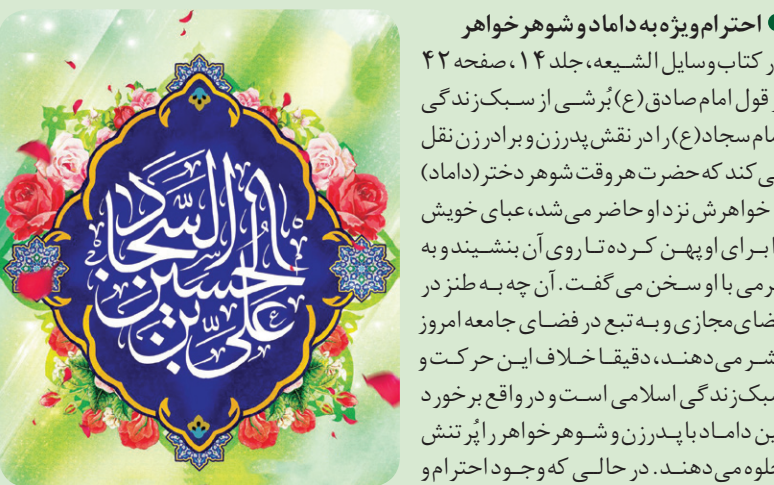 احترام ویژه به داماد و شوهر خواهر
کتاب وسایل الشیعه، جلد ۱۴، صفحه ۴۲
قول امام صادق(ع) بُرشی از سبک زندگی
امام سجاد(ع) را در نقش پدرزن و برادرزن نقل
می کند که حضرت هر وقت شوهر دختر (داماد)
خواهرش نزد او حاضر می‌شد، عبای خویش
برای او پهن کرده تا روی آن بنشیند و به
نرمی با او سخن می گفت. آن چه به طنز در
فضای مجازی و به تبع در فضای جامعه امروز
نشر می دهند، دقیقا خلاف این حرکت و
سبک زندگی اسلامی است و در واقع برخورد
بین داماد با پدرزن و شوهر خواهر را پُر تنش
جلوه می دهند. در حالی که وجود احترام و
علی بن الحسین السجاد